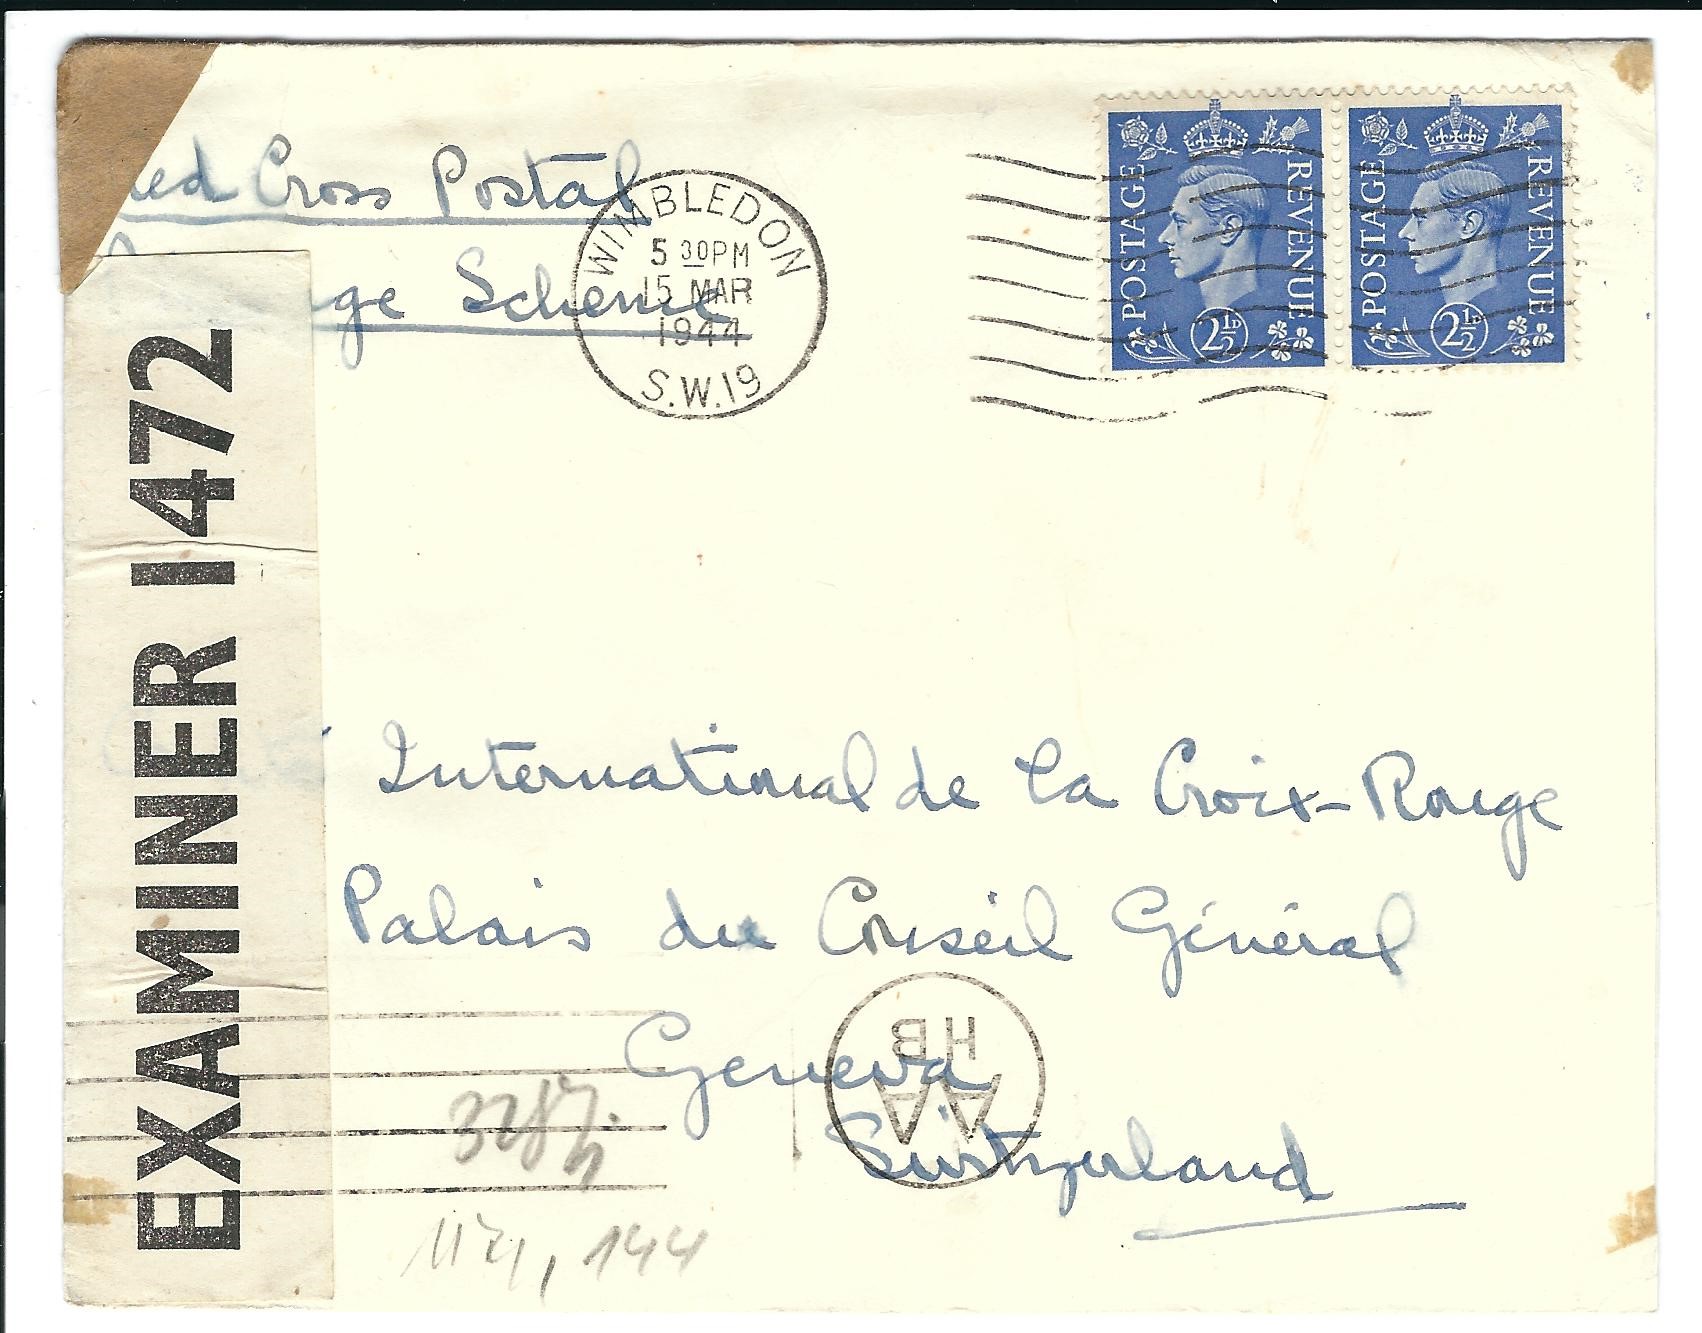 Red Cross Postal
ge Scheme
WIMBLEDON
5 30PM
15 MAR
1944
S.W.19
POSTAGE REVENUE
2½D
POSTAGE REVENUE
2½D
EXAMINER 1472
International de la Croix-Rouge
Palais du Conseil Général
Geneva
Switzerland
AA
HB